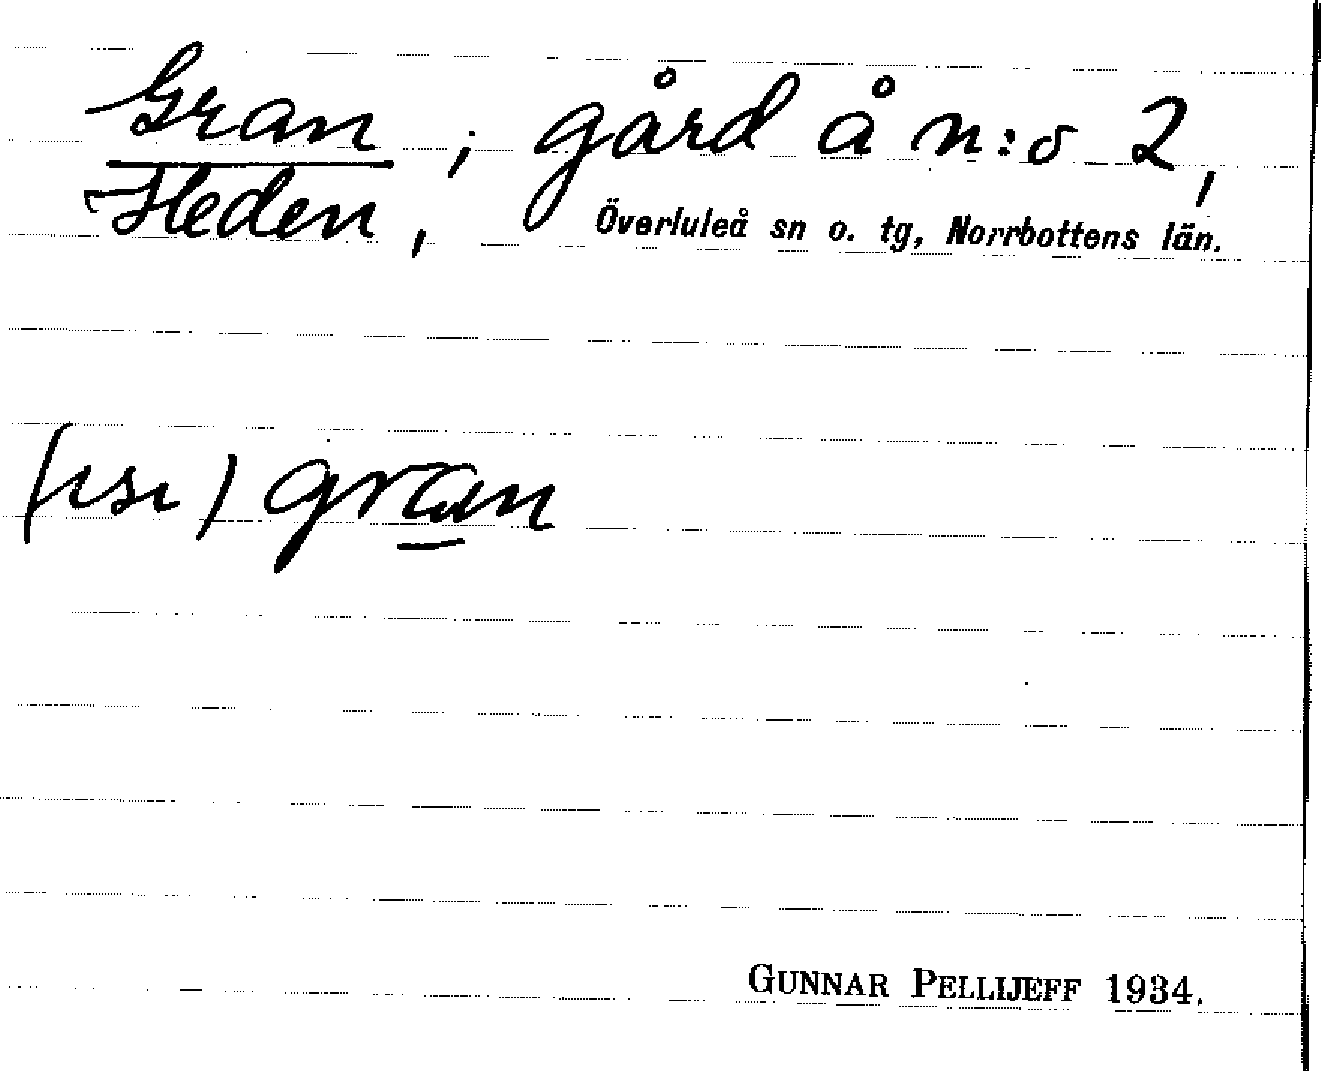 Gran, gård å n:o 2,
Heden, Överluleå sn o. tg, Norrbottens län.
gran
GUNNAR PELLIJEFF 1934.